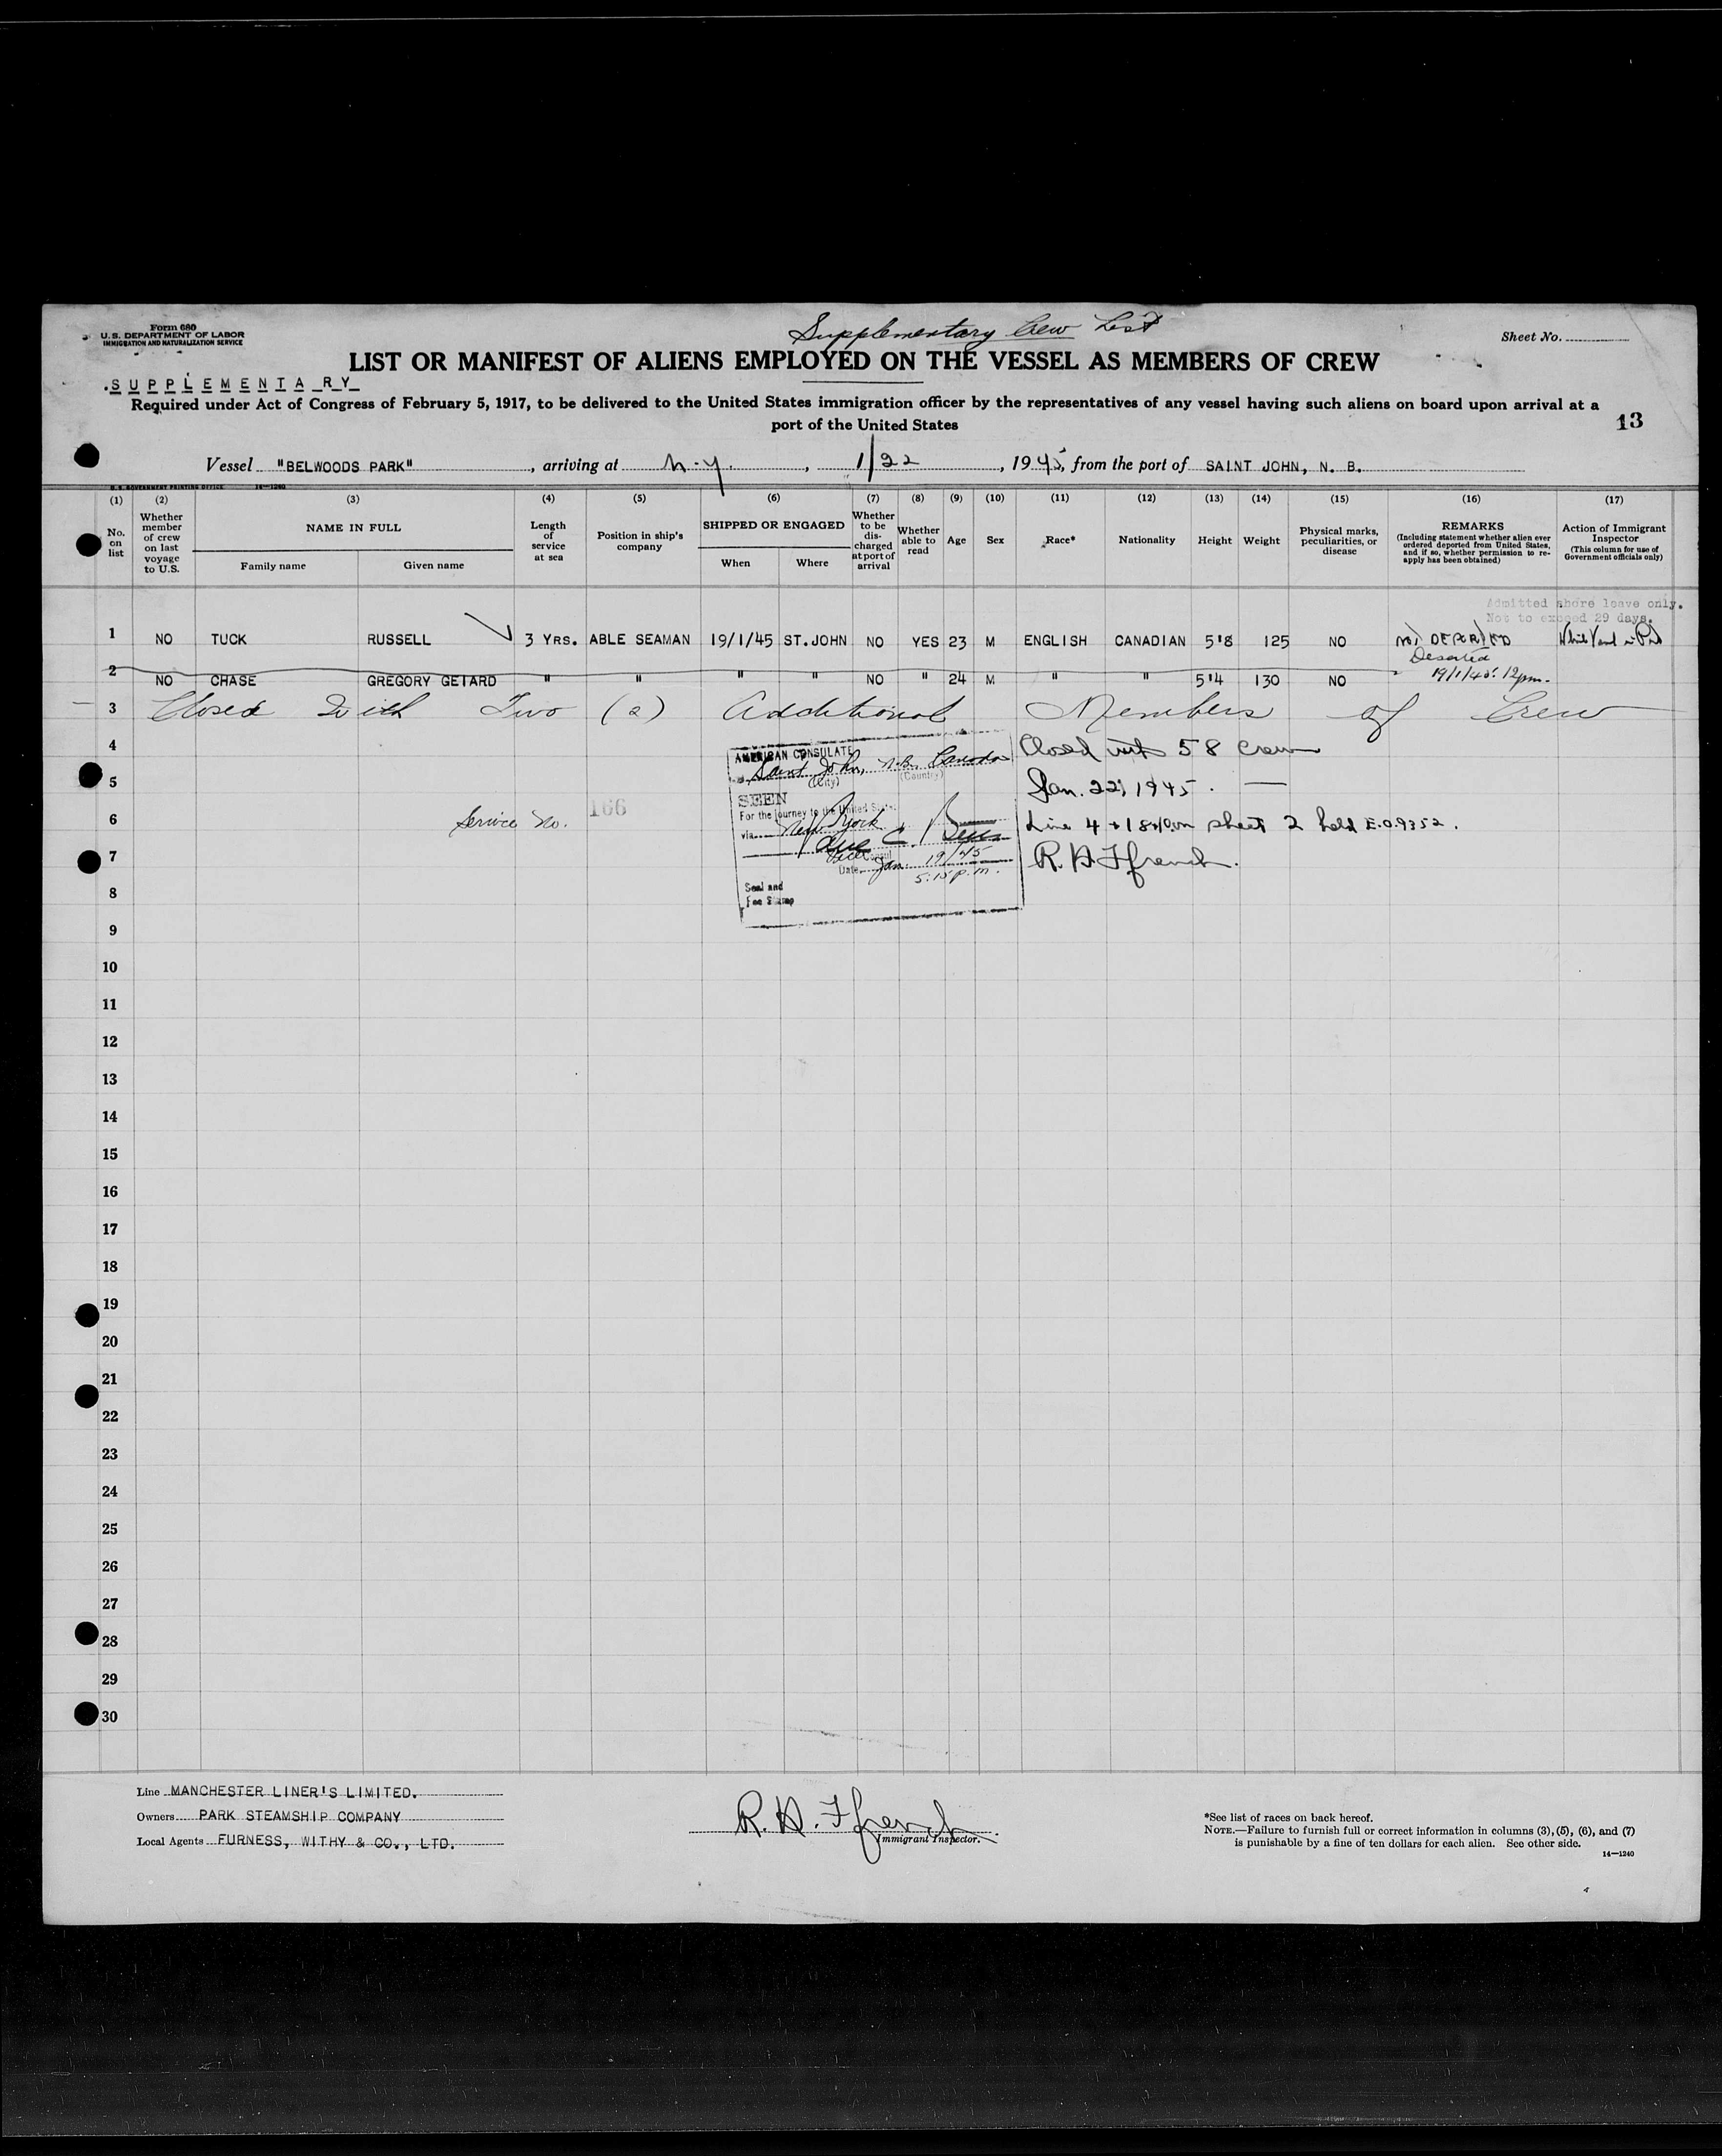 Form 680
U.S. DEPARTMENT OF LABOR
IMMIGRATION AND NATURALIZATION SERVICE
Supplementary Crew List
Sheet No.
LIST OR MANIFEST OF ALIENS EMPLOYED ON THE VESSEL AS MEMBERS OF CREW
SUPPLEMENTARY
Required under Act of Congress of February 5, 1917, to be delivered to the United States immigration officer by the representatives of any vessel having such aliens on board upon arrival at a
port of the United States
13
Vessel "BELWOODS PARK", arriving at N.Y., 1/22, 1945, from the port of SAINT JOHN, N. B.
U.S. GOVERNMENT PRINTING OFFICE 14—1240
(1) (2) (3) (4) (5) (6) (7) (8) (9) (10) (11) (12) (13) (14) (15) (16) (17)
No. on list
Whether member of crew on last voyage to U.S.
NAME IN FULL
Family name Given name
Length of service at sea
Position in ship's company
SHIPPED OR ENGAGED
When Where
Whether to be discharged at port of arrival
Whether able to read
Age
Sex
Race*
Nationality
Height
Weight
Physical marks, peculiarities, or disease
REMARKS
(Including statement whether alien ever ordered deported from United States, and if so, whether permission to re-apply has been obtained)
Action of Immigrant Inspector
(This column for use of Government officials only)
Admitted shore leave only.
Not to exceed 29 days.
1 NO TUCK RUSSELL 3 YRS. ABLE SEAMAN 19/1/45 ST.JOHN NO YES 23 M ENGLISH CANADIAN 5'8 125 NO NOT DEPORTED
Deserted
2 NO CHASE GREGORY GETARD " " " " NO " 24 M " " 5'4 130 NO 19/1/45. 12pm.
3 Closed With Two (2) Additional Members of Crew
4
AMERICAN CONSULATE
Saint John, N.B. Canada
(City) (Country)
Closed with 58 Crew
5
SEEN
Jan. 22, 1945.
For the journey to the United States
6
Service No. 166
via New York
Line 4 + 18 on sheet 2 held E.O.9352.
7
Vice Consul
Date Jan. 19/45
5:15 p.m.
R. H. Ffrench.
8
Seal and
Fee Stamp
9
10
11
12
13
14
15
16
17
18
19
20
21
22
23
24
25
26
27
28
29
30
Line MANCHESTER LINER'S LIMITED.
Owners PARK STEAMSHIP COMPANY
Local Agents FURNESS, WITHY & CO., LTD.
R. H. Ffrench
Immigrant Inspector.
*See list of races on back hereof.
NOTE.—Failure to furnish full or correct information in columns (3), (5), (6), and (7)
is punishable by a fine of ten dollars for each alien. See other side.
14—1240